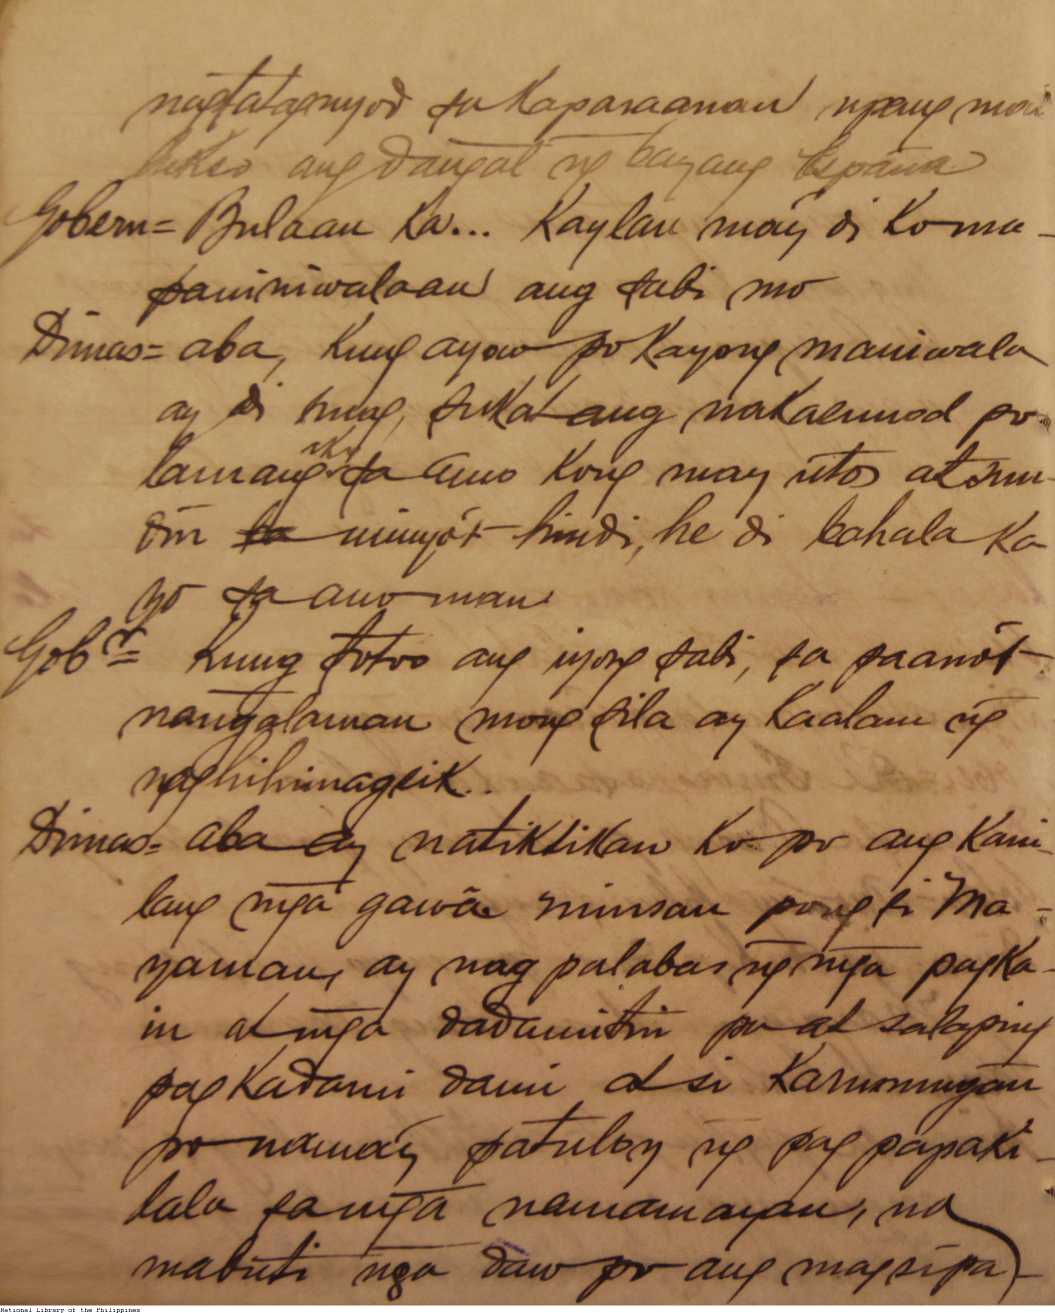 nagtataguyod sa Kaparaanan upang ma
ang dangal ng bayang España
Gobern = Bulaan Ka... Kaylan may di Ko ma-
paniniwalaan ang sabi mo
Dimas = aba, Kung ayaw po Kayong maniwala
ay di hung, suKat ang naKaeunod po
lamang aKo sa amo Kong may utos at sun-
din niuyo't hindi, he di bahala Ka
yo sa ano man
Gobr = Kung totoo ang iyong sabi, sa paano't
nangalaman mong sila ay Kaalam ng
naghihimagsik..
Dimas = aba ay natiKtiKan Ko po ang Kani-
lang mga gawa minsan pong si Ma-
yaman, ay nag palabas ng mga pagKa-
in at mga dadamitin po at salaping
pagKadami dami at si Karunungan
po nama'y patuloy ng pag papaKi-
lala sa mga namamayan, na
mabuti nga daw po ang magsipa-
National Library of the Philippines